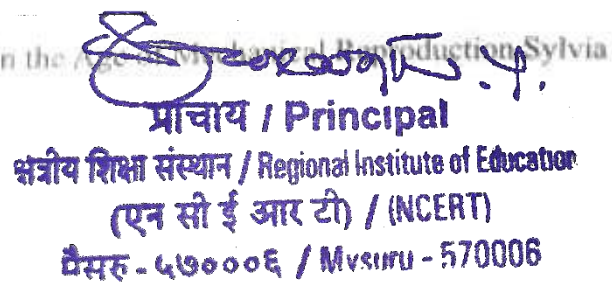 n the Age of Mechanical Reproduction Sylvia
प्राचार्य / Principal
क्षेत्रीय शिक्षा संस्थान / Regional Institute of Education
(एन सी ई आर टी) / (NCERT)
मैसूरु - ५७०००६ / Mysuru - 570006